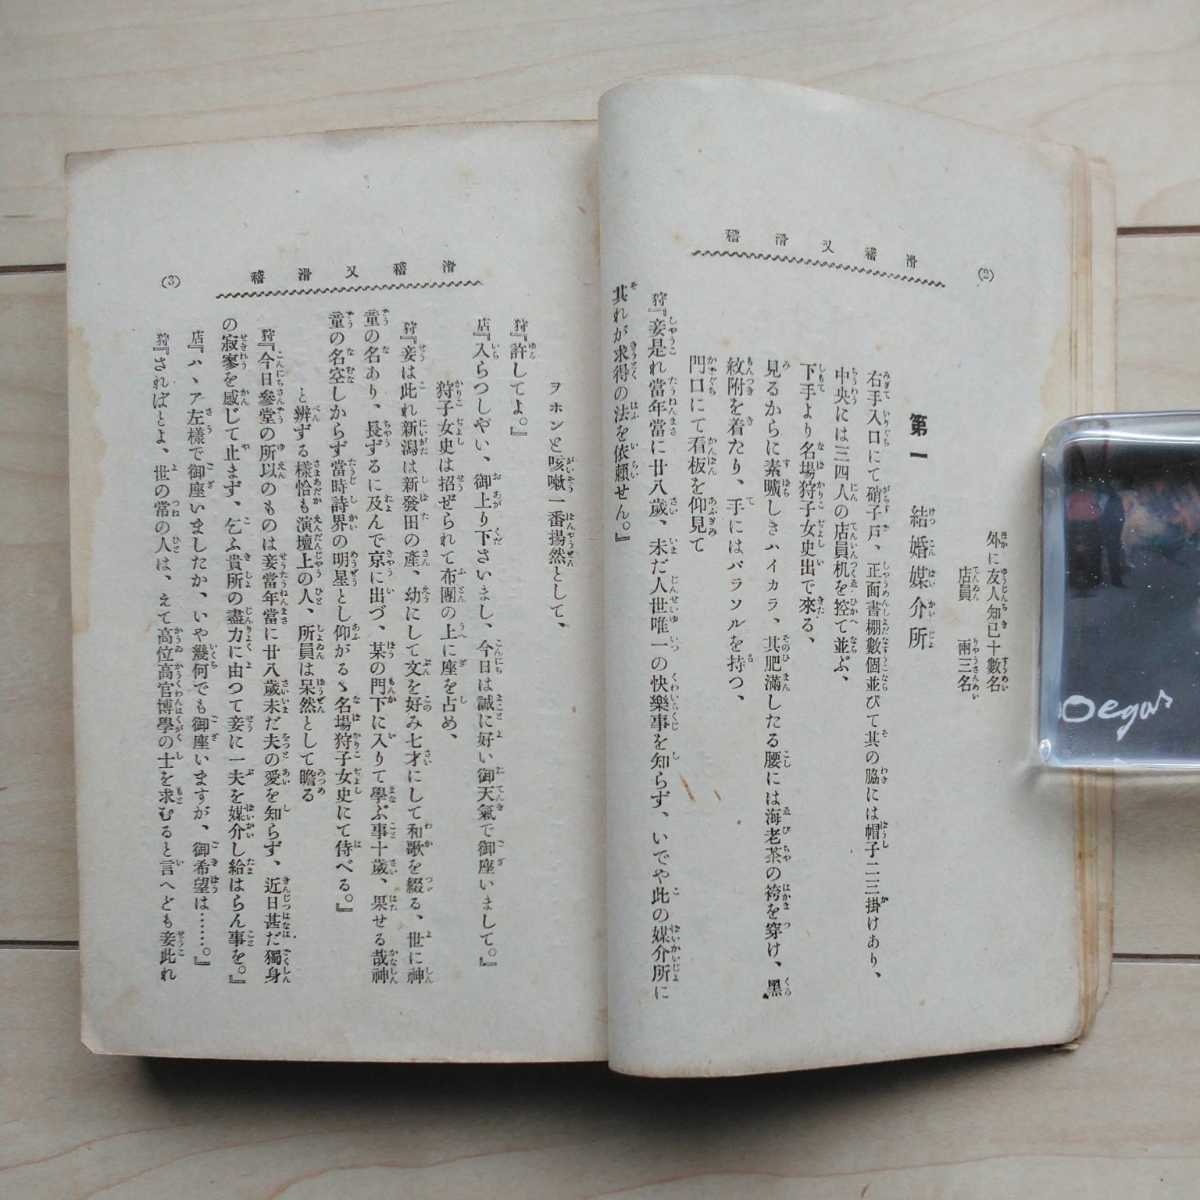 (2)
滑稽又滑稽
外に友人知己十數名
店員　兩三名
第一　結婚媒介所
右手入口にて硝子戸、正面書棚數個並びて其の脇には帽子二三掛けあり、
中央には三四人の店員机を控て並ぶ、
下手より名場狩子女史出で來る、
見るからに素曠しきハイカラ、其肥滿したる腰には海老茶の袴を穿け、黑
紋附を着たり、手にはパラソルを持つ、
門口にて看板を仰見て
狩『妾是れ當年當に廿八歲、未だ人世唯一の快樂事を知らず、いでや此の媒介所に
其れが求得の法を依賴せん。』
(3)
滑稽又滑稽
ヲホンと咳嗽一番揚然として、
狩『許してよ。』
店『入らつしやい、御上り下さいまし、今日は誠に好い御天氣で御座いまして。』
狩子女史は招ぜられて布團の上に座を占め、
狩『妾は此れ新潟は新發田の產、幼にして文を好み七才にして和歌を綴る、世に神
童の名あり、長ずるに及んで京に出づ、某の門下に入りて學ぶ事十歲、果せる哉神
童の名空しからず當時詩界の明星とし仰がるゝ名場狩子女史にて侍べる。』
と辨ずる樣恰も演壇上の人、所員は呆然として瞻る
狩『今日參堂の所以のものは妾當年當に廿八歲未だ夫の愛を知らず、近日甚だ獨身
の寂寥を感じて止まず、乞ふ貴所の盡力に由つて妾に一夫を媒介し給はらん事を。』
店『ハヽア左樣で御座いましたか、いや幾何でも御座いますが、御希望は……。』
狩『さればとよ、世の常の人は、えて高位高官博學の士を求むると言へども妾此れ
Degas